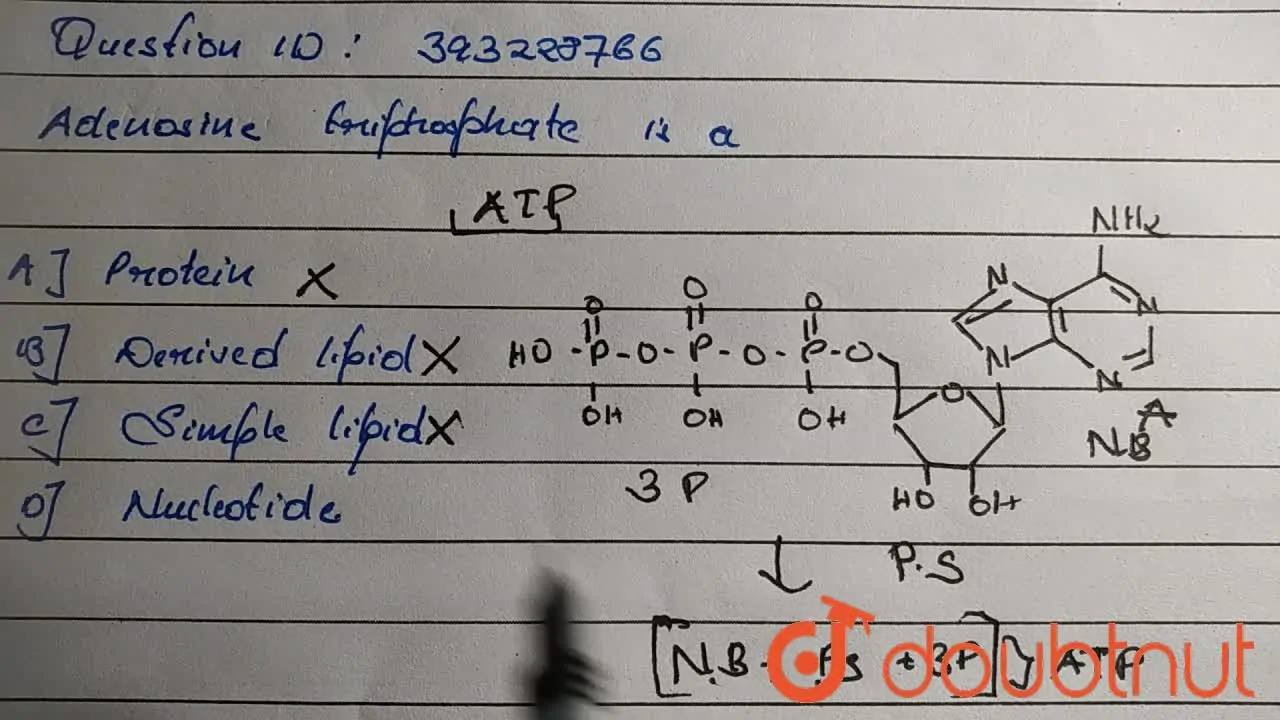 Question ID: 393228766
Adenosine triphosphate is a
ATP
A] Protein X
B] Derived lipid X
C] Simple lipid X
D] Nucleotide
NH2
N
N
N
N
O
O
O
HO - P - O - P - O - P - O
OH
OH
OH
O
HO
OH
A
N.B
3 P
P.S
[N.B + P.S + 3P] } ATP
doubtnut